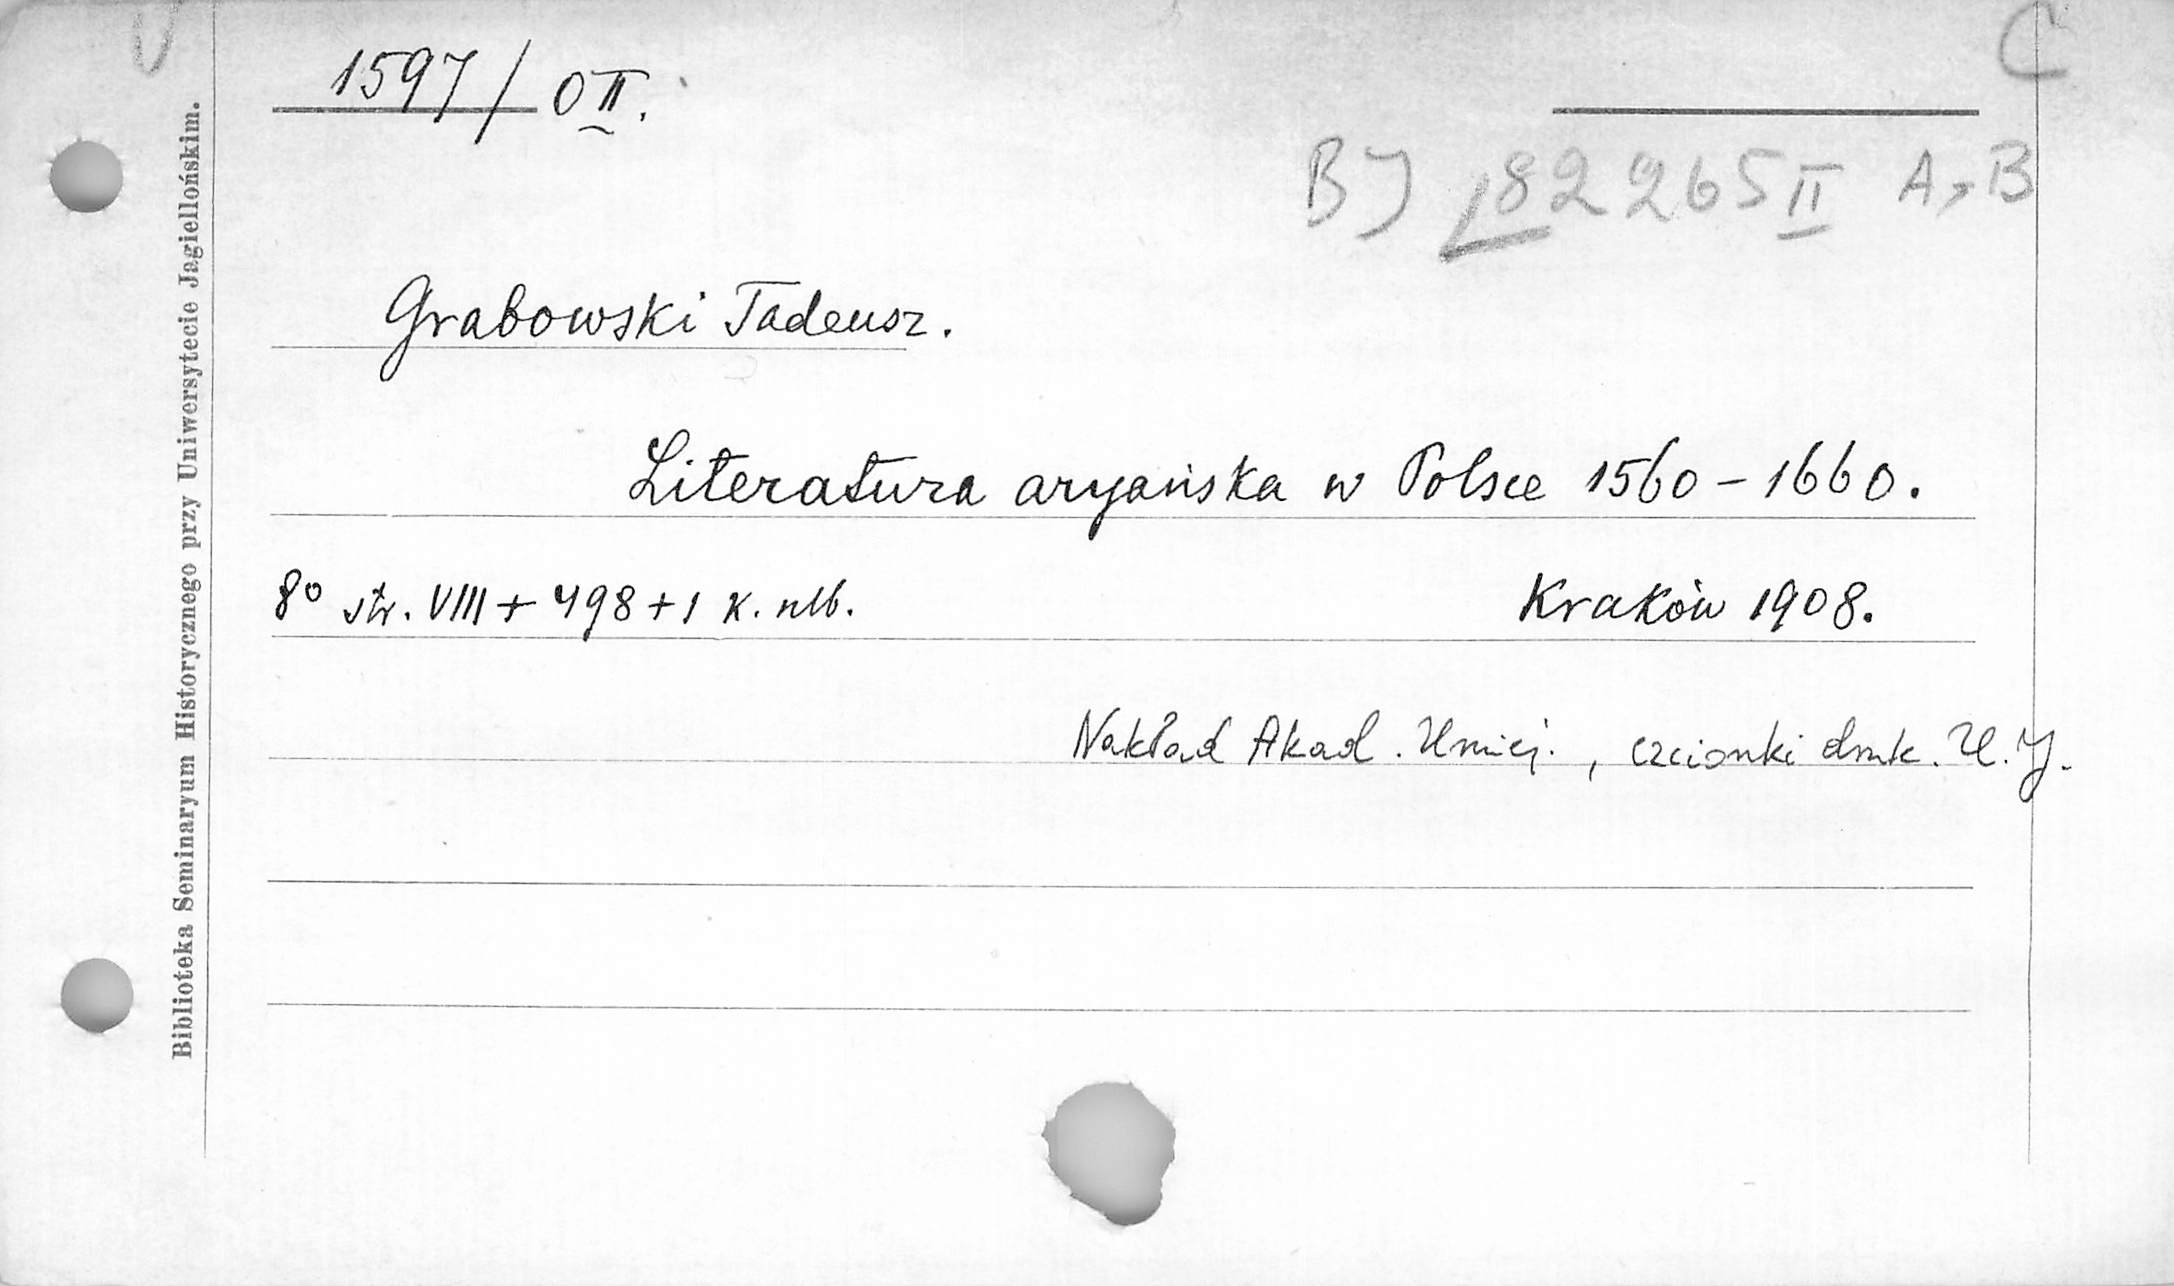 C
1597/OII.
BJ 182265 II A, B
Grabowski Tadeusz.
Literatura aryańska w Polsce 1560-1660.
8° str. VIII + 498 + 1 k. nlb. Kraków 1908.
Nakład Akad. Umiej., czcionki druk. U. J.
Biblioteka Seminaryum Historycznego przy Uniwersytecie Jagiellońskim.